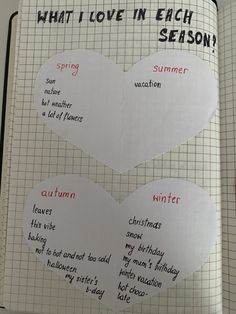 WHAT I LOVE IN EACH
SEASON?
spring
sun
nature
hot weather
a lot of flowers
summer
vacation
autumn
leaves
this vibe
baking
not to hot and not too cold
halloween
my sister's
b-day
winter
christmas
snow
my birthday
my mum's birthday
winter vacation
hot choco-
late